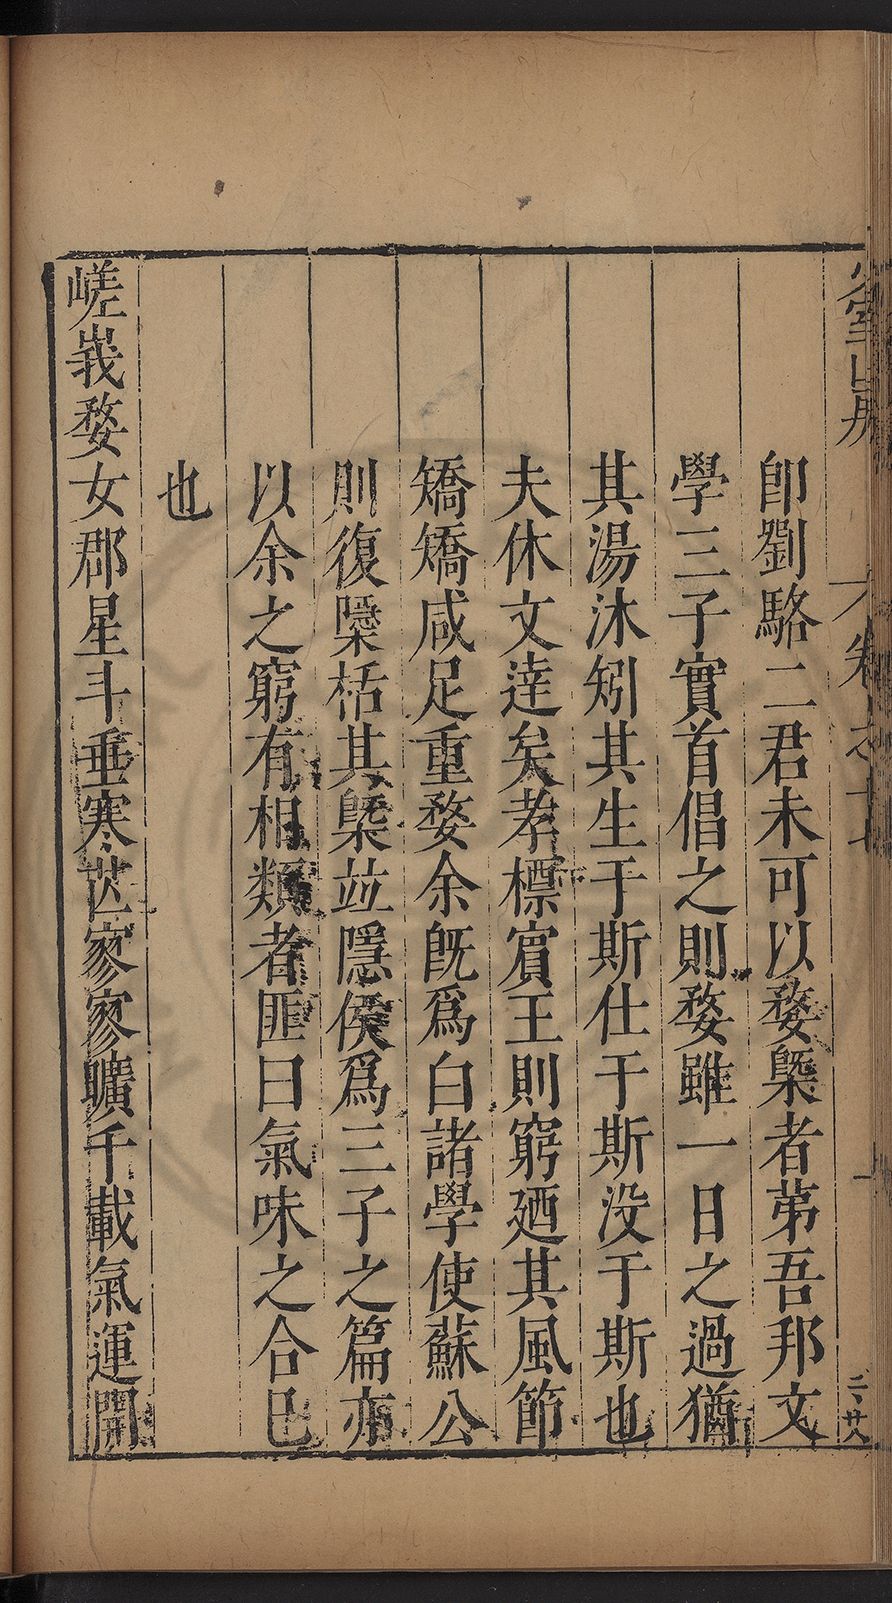 少室山房
卷之十七
二、廿八
卽劉駱二君未可以婺槩者苐吾邦文
學三子實首倡之則婺雖一日之過猶
其湯沐矧其生于斯仕于斯没于斯也
夫休文達矣孝標賔王則窮廼其風節
矯矯咸足重婺余旣爲白諸學使蘇公
則復檃栝其槩竝隱侯爲三子之篇亦
以余之窮有相類者匪曰氣味之合已
也
嵯峩婺女郡星斗垂寒芒寥寥曠千載氣運開